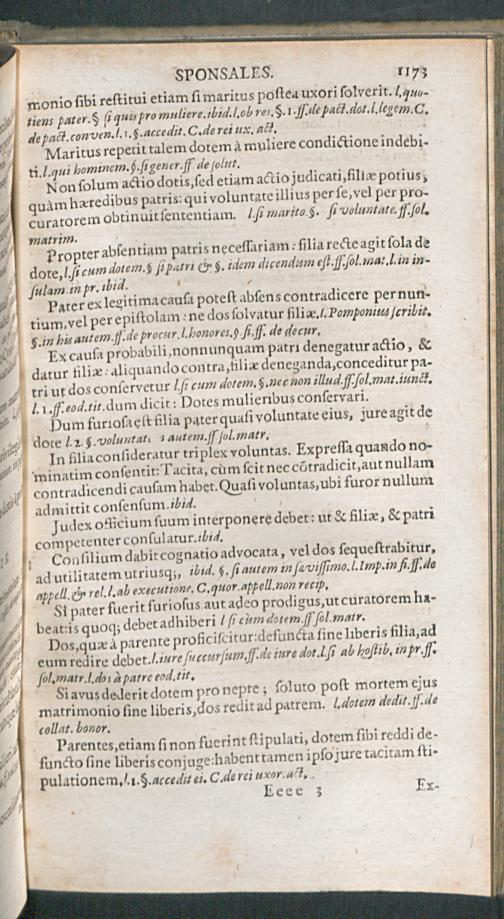 SPONSALES. 1173
monio sibi restitui etiam si maritus postea uxori solverit. l.quo-
tiens pater.§ si quis pro muliere.ibid.l.ob res.§.1.ff.de pact.dot.l.legem.C.
de pact.conven.l.1.§.accedit.C.de rei ux. act.
Maritus repetit talem dotem à muliere condictione indebi-
ti.l.qui hominem.§.si gener.ff de solut.
Non solum actio dotis,sed etiam actio judicati,filiæ potius,
quàm hæredibus patris: qui voluntate illius per se,vel per pro-
curatorem obtinuit sententiam. l.si marito.§. si voluntate.ff.sol.
matrim.
Propter absentiam patris necessariam: filia recte agit sola de
dote,l.si cum dotem.§ si patri & §. idem dicendum est.ff.sol.mat.l.in in-
sulam.in pr.ibid.
Pater ex legitima causa potest absens contradicere per nun-
tium,vel per epistolam: ne dos solvatur filiæ,l.Pomponius scribit.
§.in his autem.ff.de procur.l.honores.§ si.ff. de decur.
Ex causa probabili,nonnunquam patri denegatur actio, &
datur filiæ: aliquando contra,filiæ deneganda,conceditur pa-
tri ut dos conservetur l.si cum dotem.§.nec non illud.ff.sol.mat.iunct.
l.1.ff.eod.tit.dum dicit: Dotes mulieribus conservari.
Dum furiosa est filia pater quasi voluntate eius, jure agit de
dote l.2.§.voluntat. 1 autem.ff sol.matr.
In filia consideratur triplex voluntas. Expressa quando no-
minatim consentit: Tacita, cùm scit nec cōtradicit,aut nullam
contradicendi causam habet. Quasi voluntas,ubi furor nullum
admittit consensum.ibid.
Judex officium suum interponere debet: ut & filiæ, & patri
competenter consulatur.ibid.
Consilium dabit cognatio advocata, vel dos sequestrabitur,
ad utilitatem utriusq;, ibid. §.si autem in sævissimo.l.Imp.in fi.ff.de
appell.& rel.l.ab executione.C.quor.appell.non recip.
Si pater fuerit furiosus aut adeo prodigus,ut curatorem ha-
beat:is quoq; debet adhiberi l si cum dotem.ff sol.matr.
Dos,quæ à parente proficiscitur:defuncta sine liberis filia,ad
eum redire debet.l.iure succursum.ff.de iure dot.l.si ab hostib.in pr.ff.
sol.matr.l.dos à patre eod.tit.
Si avus dederit dotem pro nepte; soluto post mortem ejus
matrimonio sine liberis,dos redit ad patrem. l.dotem dedit.ff.de
collat.bonor.
Parentes,etiam si non fuerint stipulati, dotem sibi reddi de-
functo sine liberis conjuge:habent tamen ipso jure tacitam sti-
pulationem,l.1.§.accedit ei. C.de rei uxor.act.
Eeee 3 Ex-